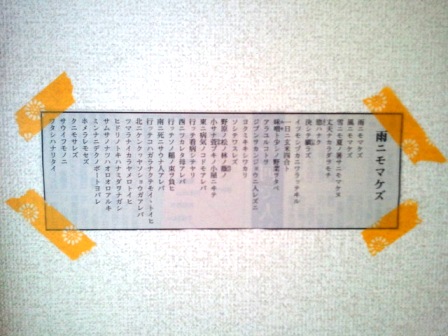 雨ニモマケズ
雨ニモマケズ
風ニモマケズ
雪ニモ夏ノ暑サニモマケヌ
丈夫ナカラダヲモチ
慾ハナク
決シテ瞋ラズ
イツモシヅカニワラッテヰル
一日ニ玄米四合ト
味噌ト少シノ野菜ヲタベ
アラユルコトヲ
ジブンヲカンジョウニ入レズニ
ヨクミキキシワカリ
ソシテワスレズ
野原ノ松ノ林ノ蔭ノ
小サナ萱ブキノ小屋ニヰテ
東ニ病気ノコドモアレバ
行ッテ看病シテヤリ
西ニツカレタ母アレバ
行ッテソノ稲ノ束ヲ負ヒ
南ニ死ニサウナ人アレバ
行ッテコハガラナクテモイヽトイヒ
北ニケンクヮヤソショウガアレバ
ツマラナイカラヤメロトイヒ
ヒドリノトキハナミダヲナガシ
サムサノナツハオロオロアルキ
ミンナニデクノボートヨバレ
ホメラレモセズ
クニモサレズ
サウイフモノニ
ワタシハナリタイ